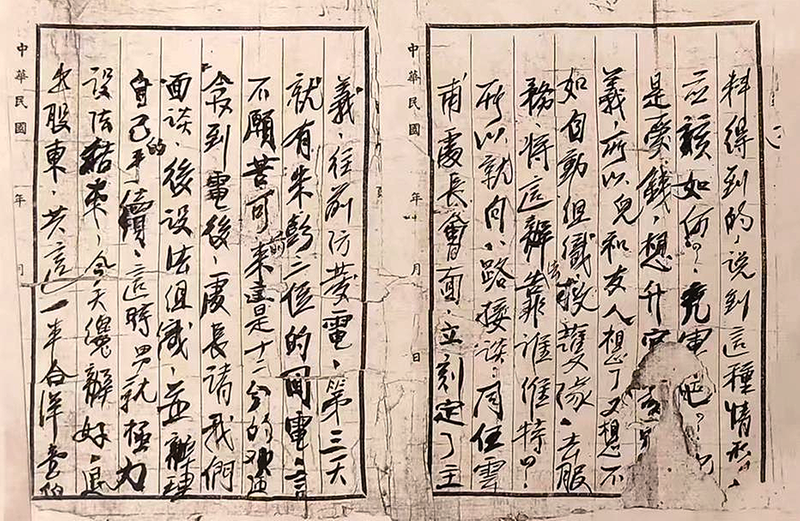 料得到的，说到這種情形，
应該如何？充軍吧？
是要錢，想升官
義，所以兒和友人想了又想，不
如自動组織救護隊，去服
務，將這辦法靠誰維持？
所以就向八路接談，同任雲
甫處長會面，立刻定了主
中華民國 年 月 日
義，往前防發電，第三天
就有朱彭二位的回電，言
不願苦可前來，這是十二分的歡迎
令到電後，處長請我們
面谈，後设法组織，並辦理
自己的手續，這時男就極力
设法結束，今天纔辦好，退
出股東，共這一半合洋壹佰
中華民國 年 月